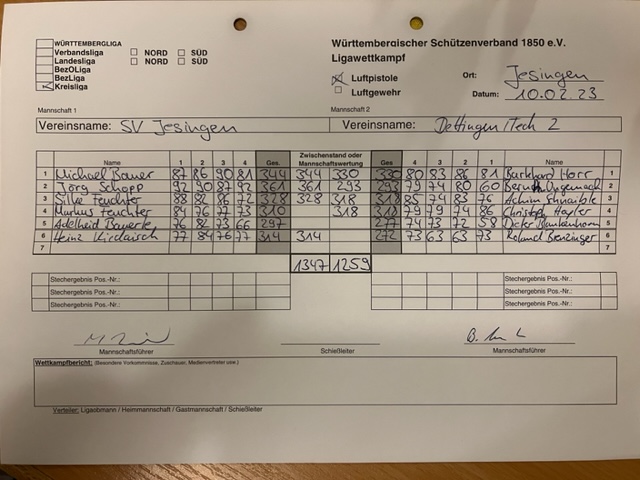 WÜRTTEMBERGLIGA
Verbandsliga NORD SÜD
Landesliga NORD SÜD
BezOLiga
BezLiga
Kreisliga
Württembergischer Schützenverband 1850 e.V.
Ligawettkampf
Luftpistole
Luftgewehr
Ort: Jesingen
Datum: 10.02.23
Mannschaft 1 Mannschaft 2
Vereinsname: SV Jesingen Vereinsname: Dettingen/Teck 2
Name 1 2 3 4 Ges. Zwischenstand oder Mannschaftswertung Ges 4 3 2 1 Name
1 Michael Bauer 87 86 90 81 344 344 330 330 80 83 86 81 Burkhard Horr 1
2 Jörg Schopp 92 90 87 92 361 361 293 293 79 74 80 60 2
3 Silke Feuchter 88 82 86 72 328 328 318 318 85 74 83 76 Achim Schnaible 3
4 Markus Feuchter 84 76 77 73 310 318 318 79 79 74 86 Christoph 4
5 Adelheid Bauerle 76 82 73 66 297 277 74 73 72 58 Dieter Blankenhorn 5
6 Heinz 77 84 76 77 314 314 272 73 63 63 73 Roland Benzinger 6
7 7
1347 1259
Stechergebnis Pos.-Nr.: Stechergebnis Pos.-Nr.:
Stechergebnis Pos.-Nr.: Stechergebnis Pos.-Nr.:
Stechergebnis Pos.-Nr.: Stechergebnis Pos.-Nr.:
Mannschaftsführer Schießleiter Mannschaftsführer
Wettkampfbericht: (Besondere Vorkommnisse, Zuschauer, Medienvertreter usw.)
Verteiler: Ligaobmann / Heimmannschaft / Gastmannschaft / Schießleiter